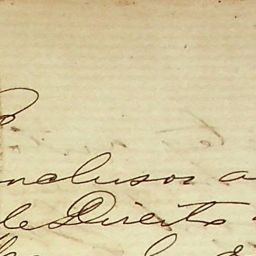 nclusos a
de Direito